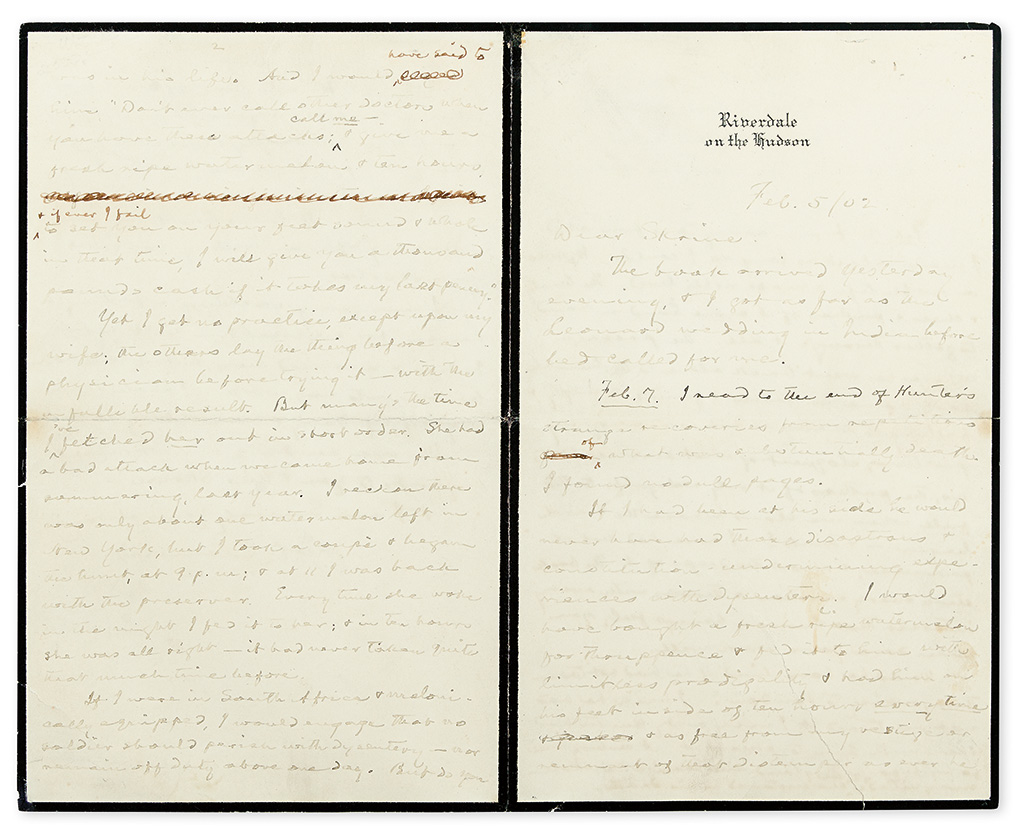 Riverdale
on the Hudson
Feb. 5/02.
Dear Skrine:
The book arrived yesterday
evening, & I got as far as the
Leonard wedding in India before
bed called for me.
Feb. 7. I read to the end of Hunter's
strange recoveries from repetitions
of what was substantially death.
I found no dull pages.
If I had been at his side he would
never have had those disastrous &
constitution-undermining expe-
riences with dysentery. I would
have bought a fresh ripe watermelon
for thruppence & fed it to him with
limitless prodigality & had him on
his feet inside of ten hours every time
& as free from any vestige or
remnant of that disease as ever he
2
was in his life. And I would have said to
him "Don't ever call other doctor when
you have these attacks; call me — & give me a
fresh ripe watermelon & ten hours,
& if ever I fail
to set you on your feet sound & whole
in that time, I will give you a thousand
pounds cash if it takes my last penny."
Yet I get no practice, except upon my
wife; the others lay the thing before a
physician before trying it — with the
infallible result. But many's the time
I've fetched her out in short order. She had
a bad attack when we came home from
summering, last year. I reckon there
was only about one watermelon left in
New York, but I took a coupé & began
the hunt, at 9 p.m.; & at 11 I was back
with the preserver. Every time she woke
in the night I fed it to her; & in ten hours
she was all right — it had never taken quite
that much time before.
If I were in South Africa & meloni-
cally equipped, I would engage that no
soldier should perish with dysentery — nor
remain off duty above one day. But do you